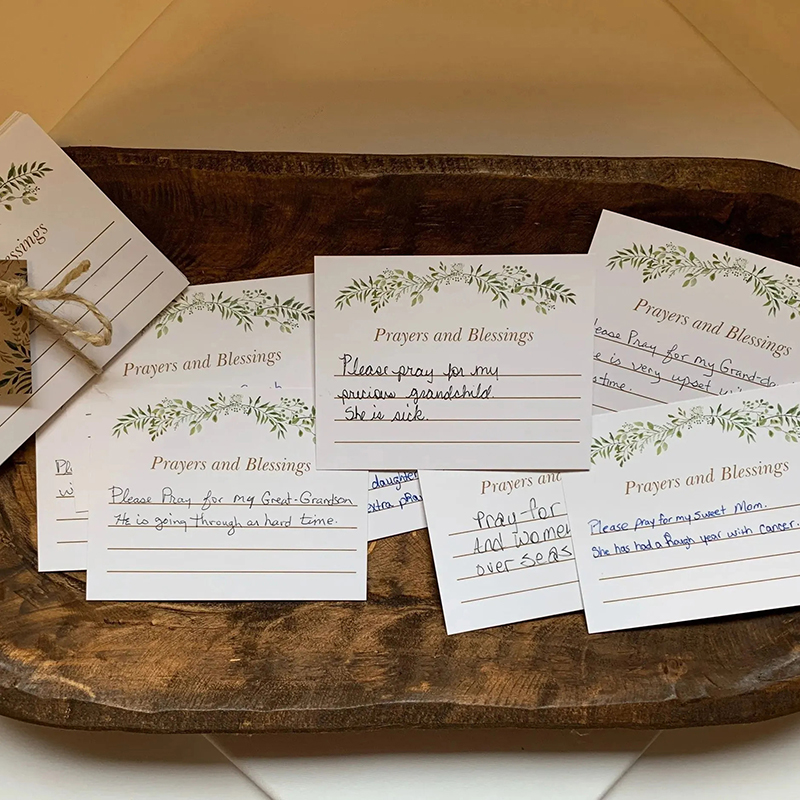 essings
Prayers and Blessings
Pl
wi
Prayers and Blessings
Please Pray for my Great-Grandson
He is going through as hard time.
Prayers and Blessings
Please pray for my
precious grandchild.
She is sick.
daughter
extra pra
Prayers an
Pray for
And Women
over seas
Prayers and Blessings
ease Pray for my Grand-da
e is very upset
time.
Prayers and Blessings
Please pray for my Sweet Mom.
She has had a Rough year with Cancer.